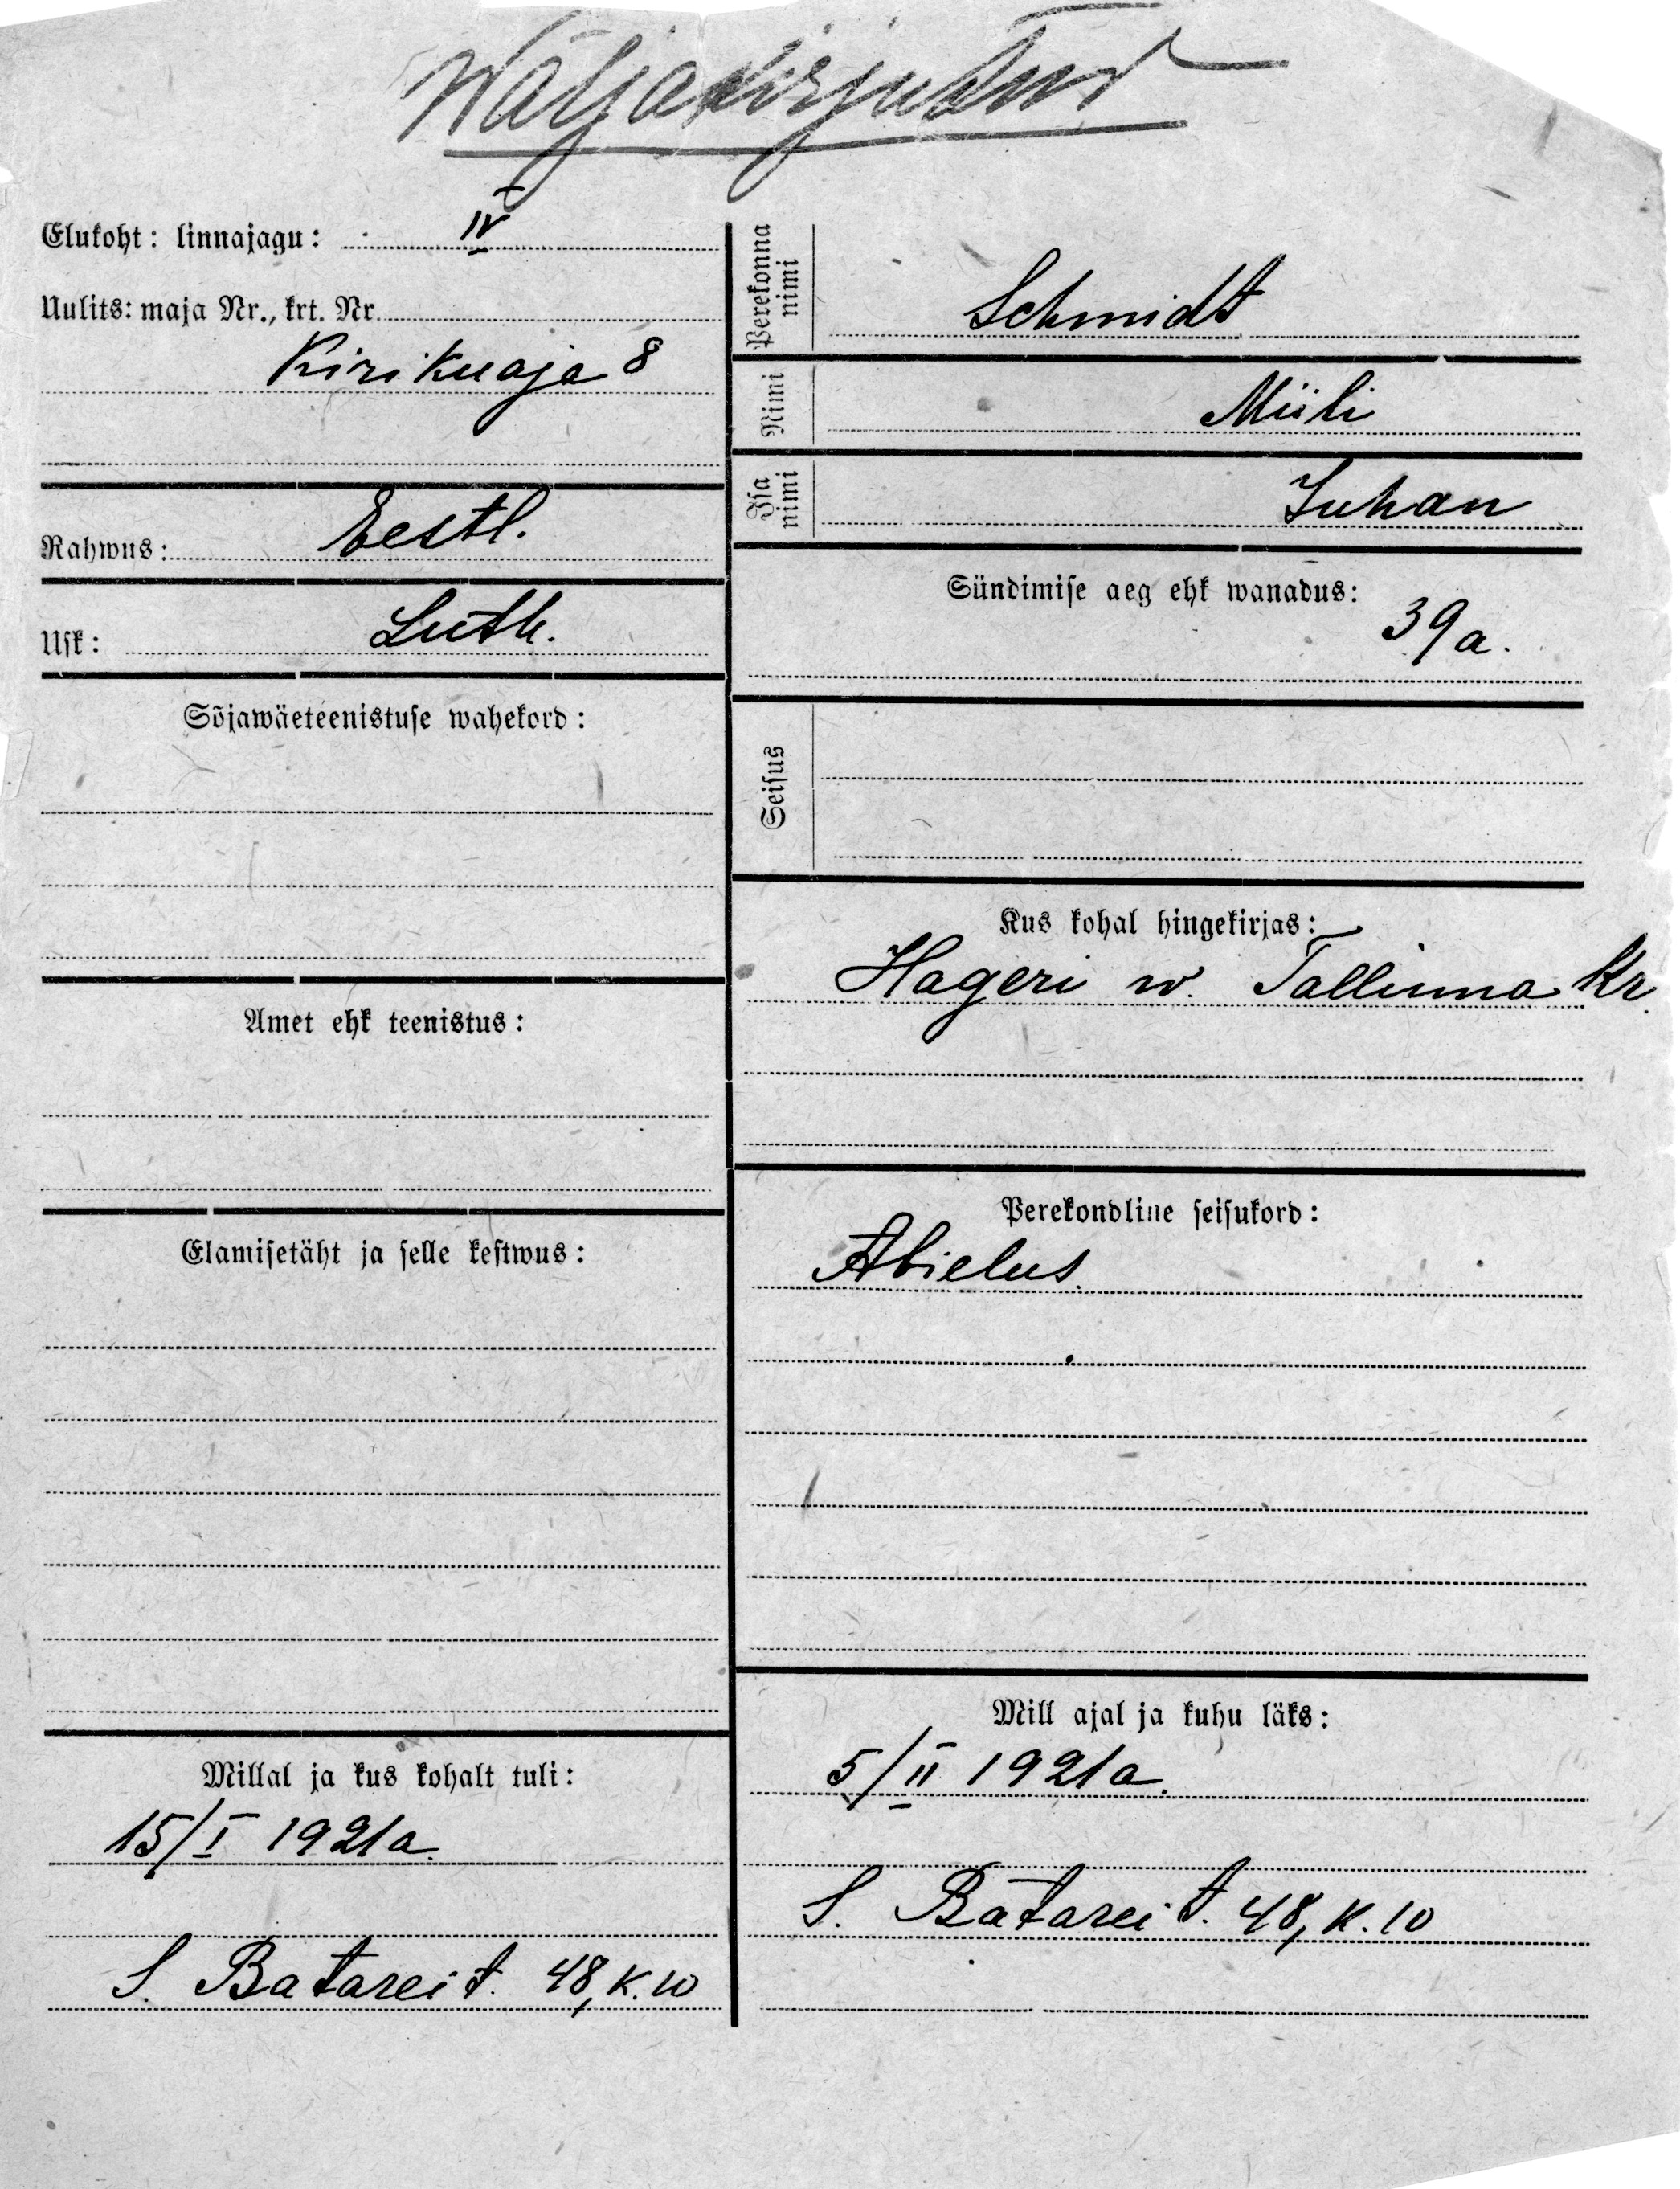 Wäljakirjutud
Elukoht: linnajagu: IV
Uulits: maja Nr., krt. Nr.
Kirikuaja 8
Rahwus: Eestl.
Usk: Luth.
Sõjawäeteenistuse wahekord:
Amet ehk teenistus:
Elamisetäht ja selle kestwus:
Millal ja kus kohalt tuli:
15/I 1921a.
S. Batarei t. 48, k. 10
Perekonna nimi Schmidt
Nimi Miili
Isa nimi Juhan
Sündimise aeg ehk wanadus:
39a.
Seisus
Kus kohal hingekirjas:
Hageri w. Tallinna Kr.
Perekondline seisukord:
Abielus.
Mill ajal ja kuhu läks:
5/II 1921a.
S. Batarei t. 48, k. 10